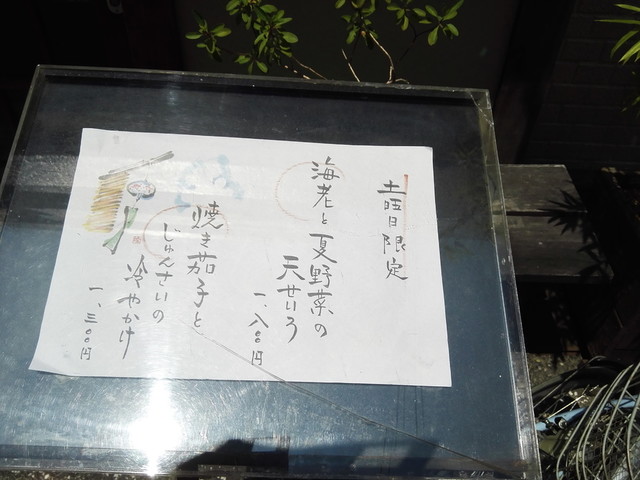 土曜日限定
海老と夏野菜の
天せいろ
一、八〇〇円
焼き茄子と
じゅんさいの
冷やかけ
一、三〇〇円